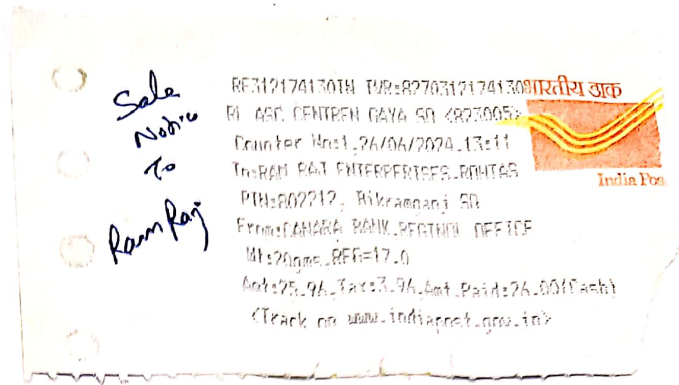 Sale
Notice
To
Ram Raj
RF312174130IN IVR:8270312174130
RL ASC CENTREN GAYA SO <823005>
Counter No:1,26/06/2024,13:11
To:RAM RAJ ENTERPERISES,ROHTAS
PIN:802212, Bikramganj SO
From:CANARA BANK,REGINOL OFFICE
Wt:20gms,REG=17.0
Amt:25.96,Tax:3.96,Amt.Paid:26.00(Cash)
<Track on www.indiapost.gov.in>
भारतीय डाक
India Pos